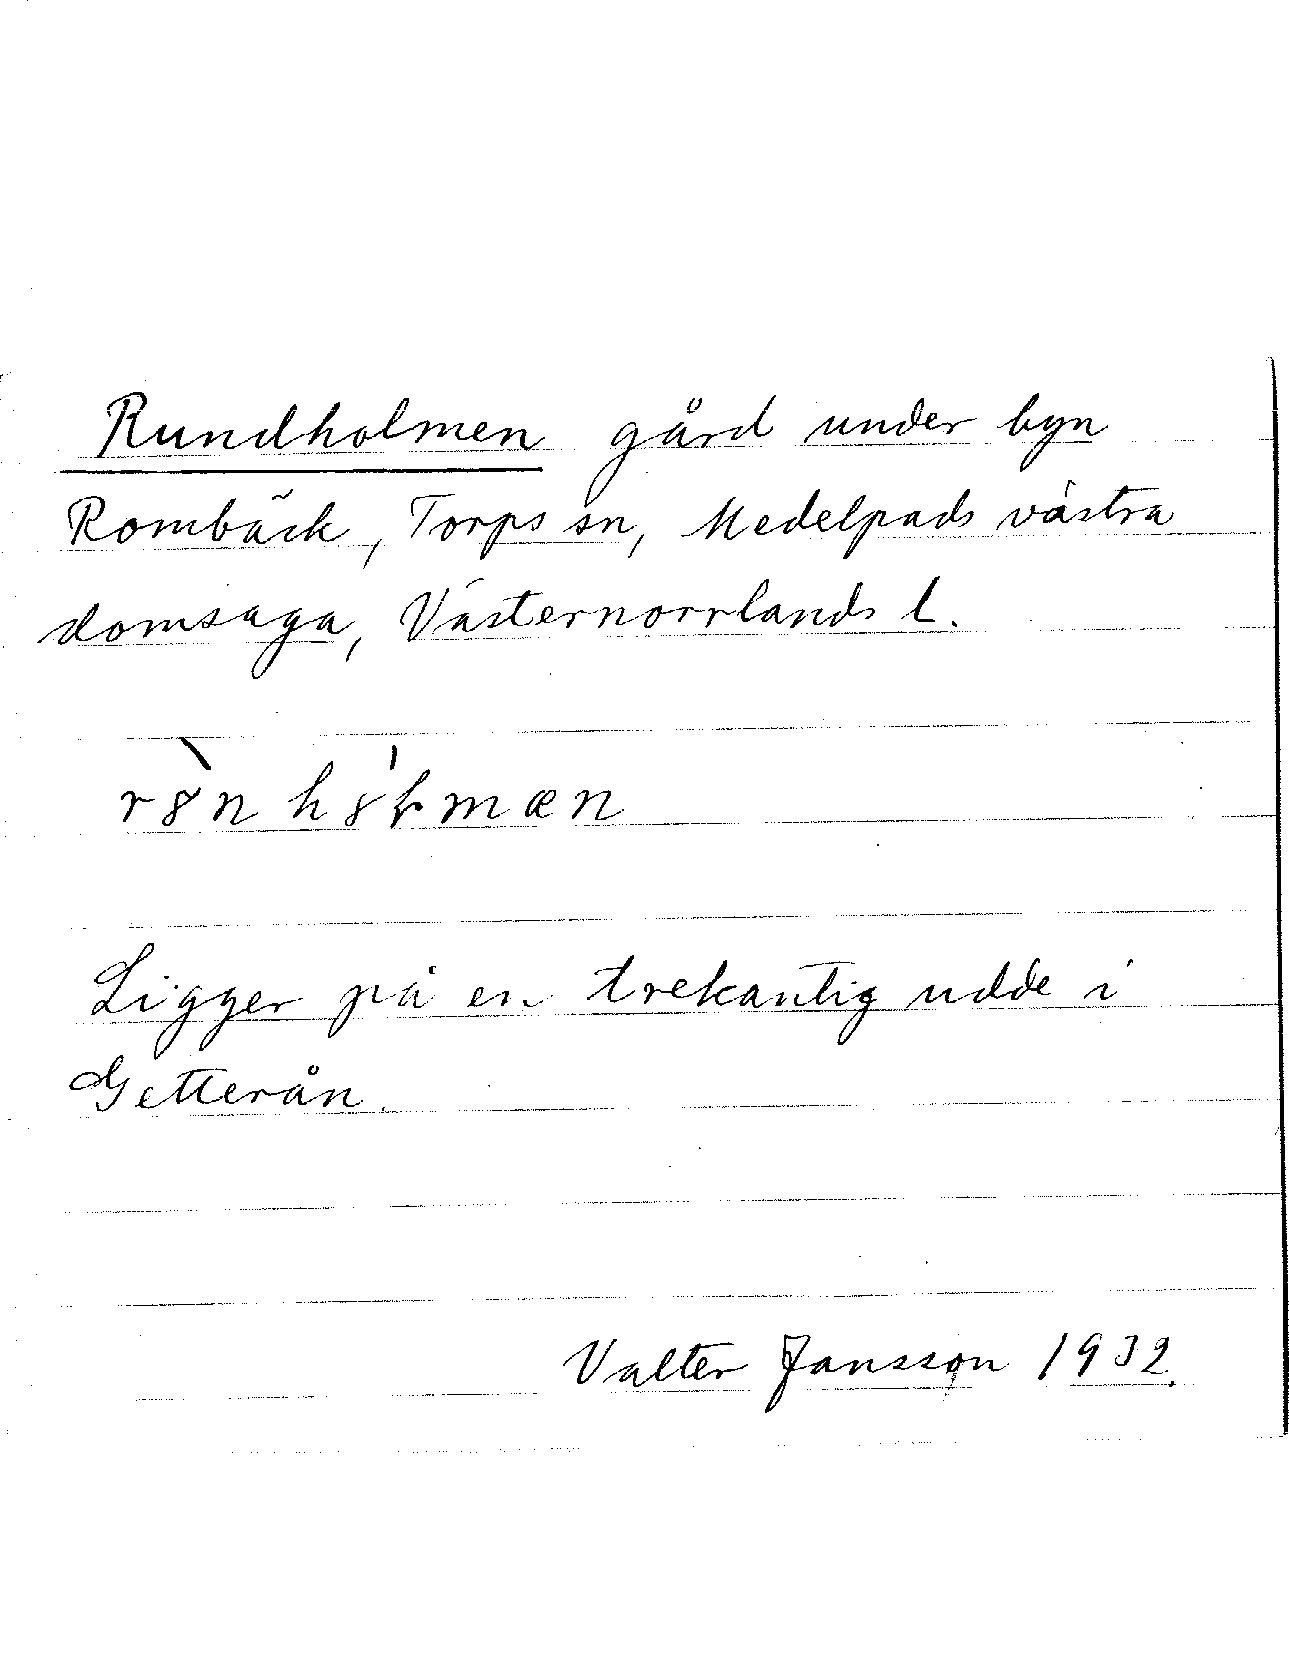 Rundholmen gård under byn
Rombäck, Torps sn, Medelpads västra
domsaga, Västernorrlands l.
r8̀n h8́ɽmæn
Ligger på en trekantig udde i
Getterån.
Valter Jansson 1932.